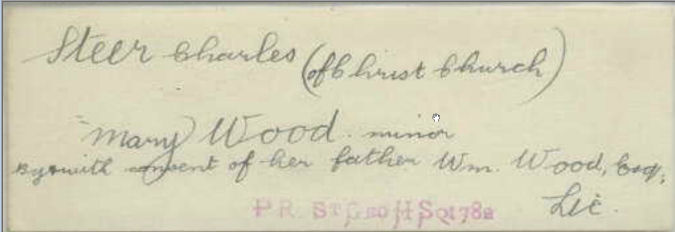 Steer Charles (of Christ Church)
Mary Wood. minor
By & with consent of her father Wm. Wood, Esq;
Lic.
PR St Geo H Sq 1782